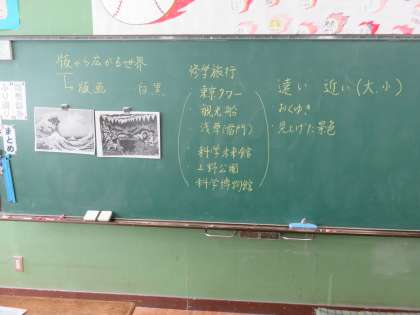 版から広がる世界
版画 白黒
修学旅行
東京タワー
・観光船
・浅草(雷門)
・科学未来館
・上野公園
・科学博物館
遠い 近い(大、小)
・おくゆき
・見上げた景色
まとめ